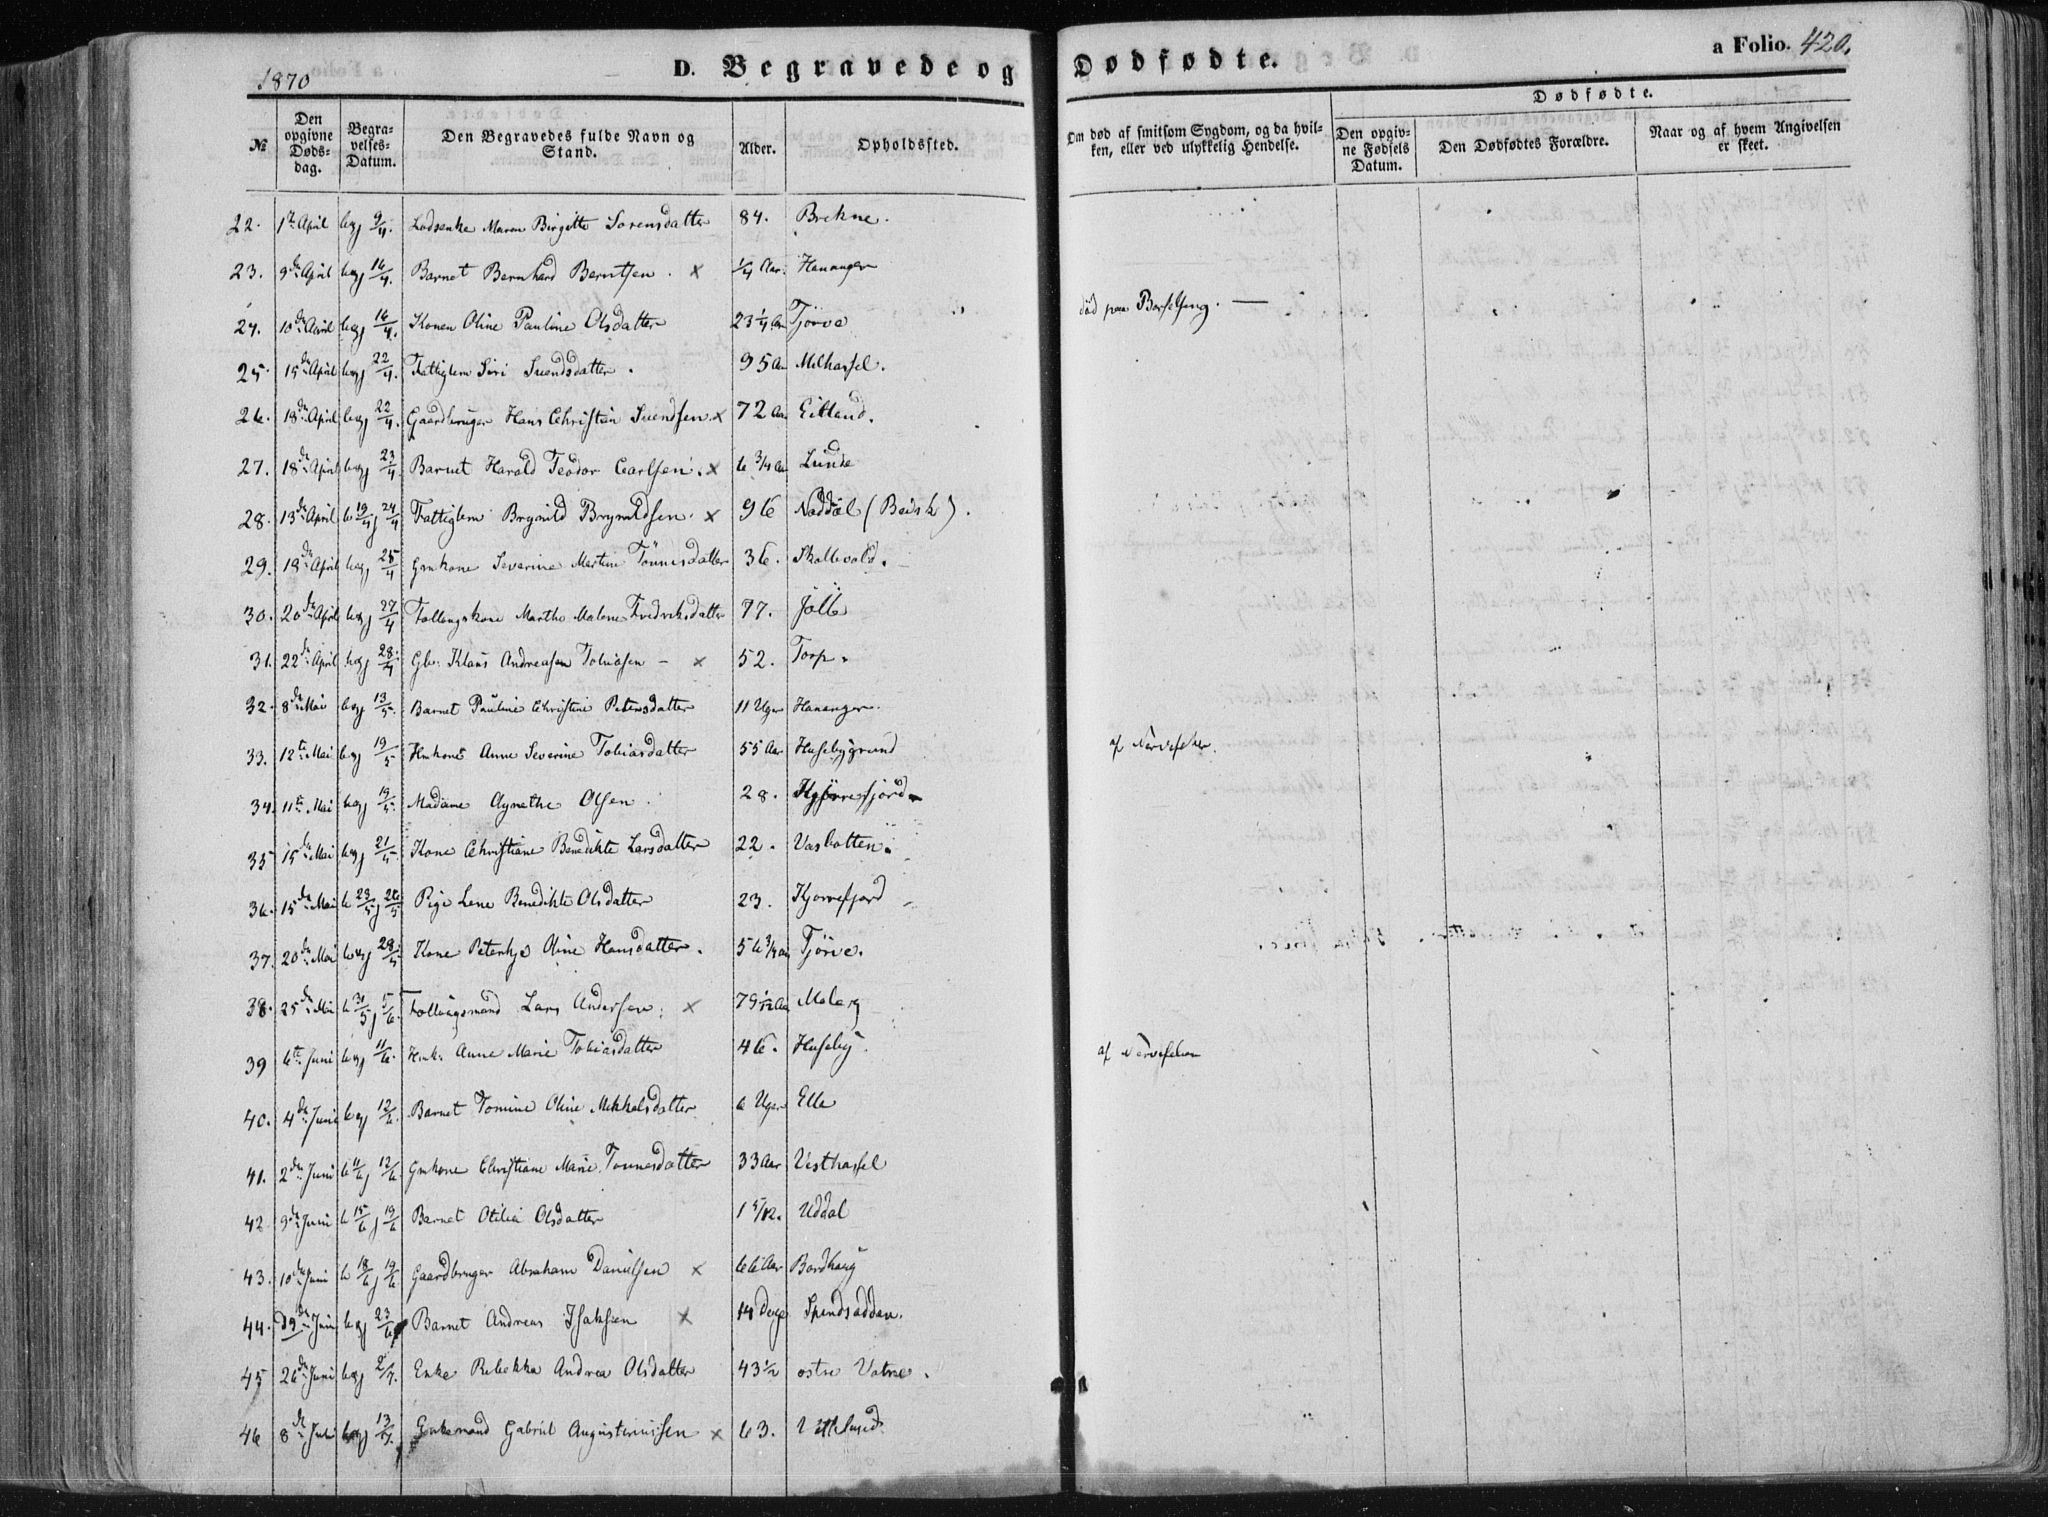 1870
D. Begravede og Dødfødte.
a Folio. 420.
№ Den opgivne Døds-dag. Begra-velses-Datum. Den Begravedes fulde Navn og Stand. Alder. Opholdssted. Om død af smitsom Sygdom, og da hvil-ken, eller ved ulykkelig Hendelse. Dødfødte. Den opgiv-ne Fødsels Datum. Den Dødfødtes Forældre. Naar og af hvem Angivelsen er skeet.
22. 1te April beg 9/4. Lodsenke Maren Birgitte Sørensdatter 84. Brekne.
23. 9de April beg 16/4. Barnet Bernhard Berntsen. × 1/4 Aar. Hananger
24. 10de April beg 16/4. Konen Oline Pauline Olsdatter 23 1/4 Aar Tjörve død paa Barselseng. —
25. 15de April beg 22/4. Fattiglem Siri Svendsdatter. 95 Aar Melhassel.
26. 18de April beg 22/4. Gaardbruger Hans Christian Svendsen × 72 Aar Eitland.
27. 18de April beg 23/4 Barnet Harald Teodor Carlsen. × 6 3/4 Aar Lunde
28. 13de April b 19/4 j 24/4 Fattiglem Brynild Brynildsen. × 96 Noddal (Beisk).
29. 18de April beg 25/4 Gmkone Severine Martine Tönnesdatter 36. Skollevold.
30. 20de April beg 27/4 Follaugskone Marthe Malene Fredriksdatter 77. Jölle
31. 22de April beg 28/4 Gbr. Klaus Andreasen Tobiasen – × 52. Torp.
32. 8de Mai beg 13/5. Barnet Pauline Christine Petersdatter 11 Uger Hananger.
33. 12te Mai beg 19/5 Hmkone Anne Severine Tobiasdatter 55 Aar Husebygrund af Nervefeber.
34. 11te Mai beg 19/5. Madame Agnethe Olsen. 28. Kjørrefjord
35 15de Mai beg 21/5 Kone Christiane Benedikte Larsdatter 22. Vasbotten.
36. 15de Mai b 23/5 j 26/5 Pige Lene Benedikte Olsdatter 23. Kjørrefjord
37. 20de Mai beg 28/5. Kone Peterkje Oline Hansdatter. 56 3/4 Aar Tjörve.
38. 25de Mai b 31/5 j 5/6. Follaugsmand Lars Andersen: × 79 1/12 Aar Maberg
39 6te Juni beg 11/6. Hmk. Anne Marie Tobiasdatter 46. Huseby. af Nervefeber
40. 4de Juni beg 12/6. Barnet Tomine Oline Mikkelsdatter 6 Uger Elle
41. 2den Juni b 11/6 j 12/6. Gmkone Christiane Marie Tönnesdatter 33 Aar Vesthassel
42 9de Juni b 15/6 j 19/6 Barnet Otilia Olsdatter 1 5/12. Uddal
43. 10de Juni b 18/6 j 19/6 Gaardbruger Abraham Danielsen × 66 Aar Bordhaug
44. 19de Juni beg 23/6 Barnet Andreas Isaksen × 14 Dage
45 26de Juni beg 2/7. Enke Rebekka Andrea Olsdatter 43 1/2 østre Vatne.
46 8de Juli beg 13/7. Enkemand Gabriel Augustinussen × 63.